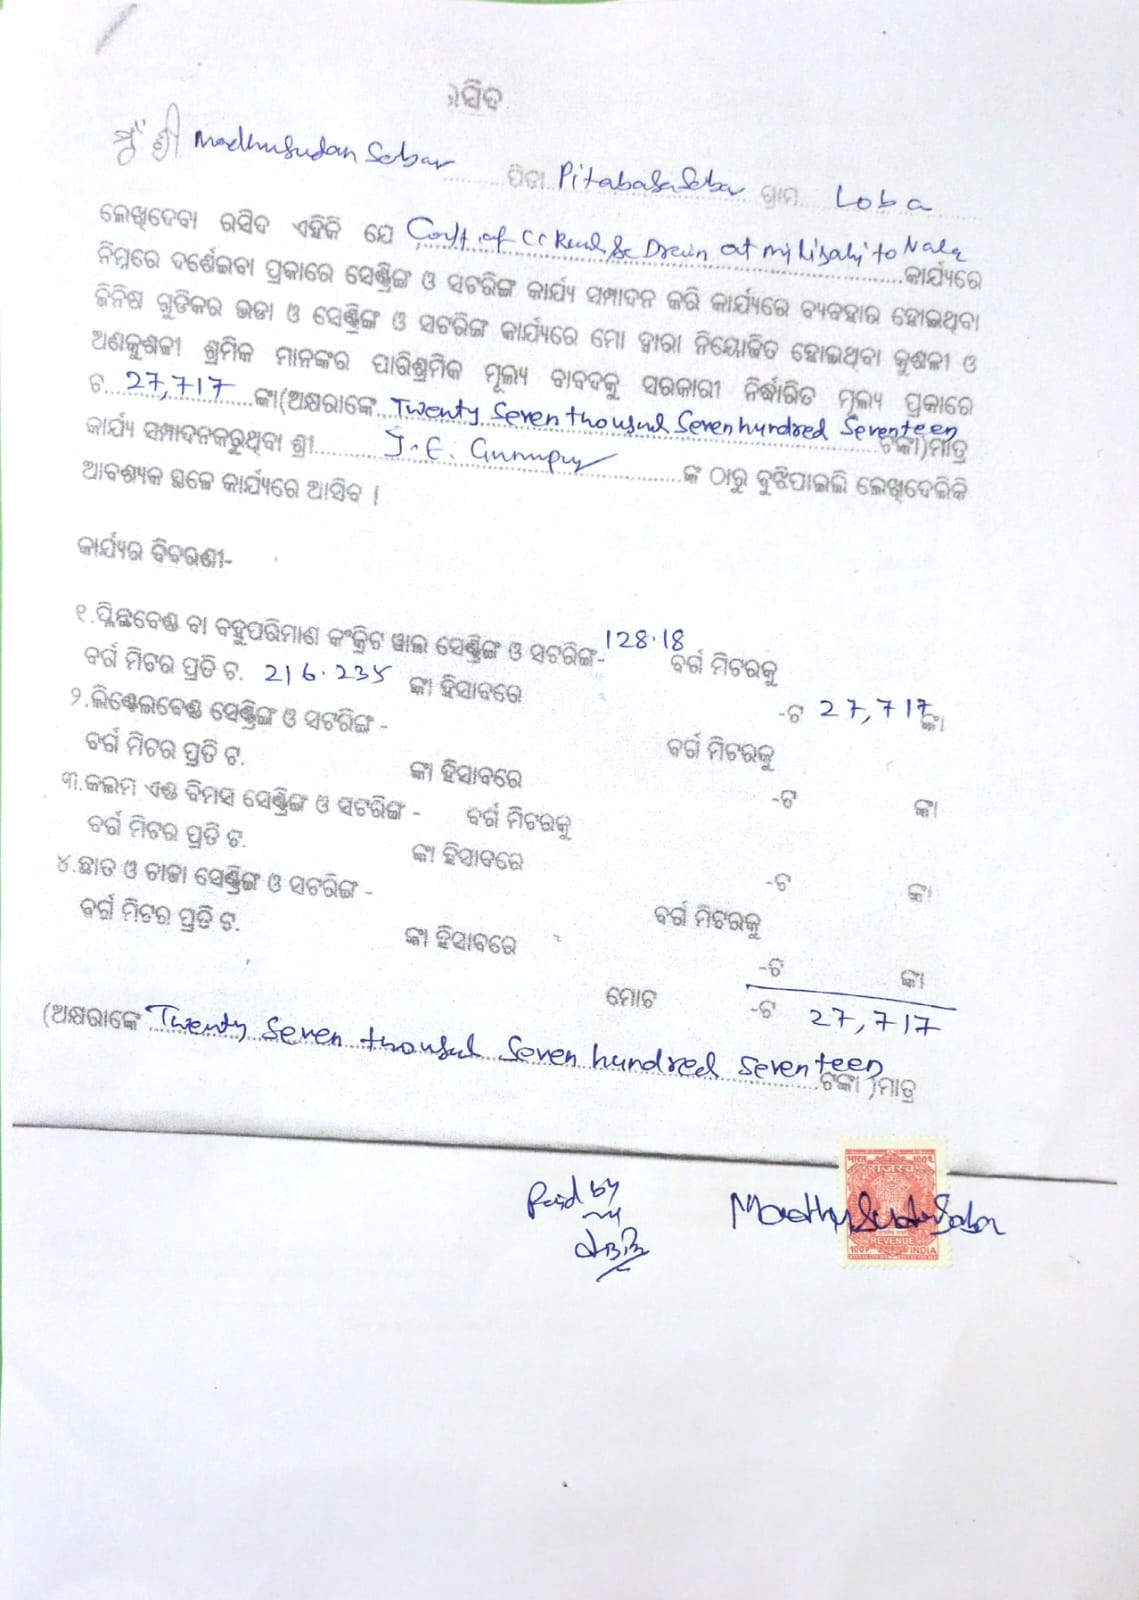 ରସିଦ
ମୁଁ ଶ୍ରୀ Madhusudan Sabar ପିତା Pitabasa Sabar ଗ୍ରାମ Loba
ଲେଖିଦେବା ରସିଦ ଏହିକି ଯେ Const. of CC Road & Drain at to Nala କାର୍ଯ୍ୟରେ
ନିମ୍ନରେ ଦର୍ଶେଇବା ପ୍ରକାରେ ସେଣ୍ଟ୍ରିଙ୍ଗ ଓ ସଟରିଙ୍ଗ କାର୍ଯ୍ୟ ସମ୍ପାଦନ କରି କାର୍ଯ୍ୟରେ ବ୍ୟବହାର ହୋଇଥିବା
ଜିନିଷ ଗୁଡିକର ଭଡା ଓ ସେଣ୍ଟ୍ରିଙ୍ଗ ଓ ସଟରିଙ୍ଗ କାର୍ଯ୍ୟରେ ମୋ ଦ୍ୱାରା ନିୟୋଜିତ ହୋଇଥିବା କୁଶଳୀ ଓ
ଅଣକୁଶଳୀ ଶ୍ରମିକ ମାନଙ୍କର ପାରିଶ୍ରମିକ ମୂଲ୍ୟ ବାବଦକୁ ସରକାରୀ ନିର୍ଦ୍ଧାରିତ ମୂଲ୍ୟ ପ୍ରକାରେ
ଟ 27,717 ଙ୍କା(ଅକ୍ଷରାଙ୍କେ Twenty Seven thousand Seven hundred Seventeen ଟଙ୍କା)ମାତ୍ର
କାର୍ଯ୍ୟ ସମ୍ପାଦନକରୁଥିବା ଶ୍ରୀ J.E. Gunupur ଙ୍କ ଠାରୁ ବୁଝିପାଇଲି ଲେଖିଦେଲିକି
ଆବଶ୍ୟକ ସ୍ଥଳେ କାର୍ଯ୍ୟରେ ଆସିବ ।
କାର୍ଯ୍ୟର ବିବରଣୀ-
୧.ପ୍ଲିନ୍ଥବେଣ୍ଡ ବା ବହୁପରିମାଣ କଂକ୍ରିଟ ୱାଲ ସେଣ୍ଟ୍ରିଙ୍ଗ ଓ ସଟରିଙ୍ଗ- 128.18 ବର୍ଗ ମିଟରକୁ
ବର୍ଗ ମିଟର ପ୍ରତି ଟ. 216.235 ଙ୍କା ହିସାବରେ -ଟ 27,717 ଙ୍କା
୨.ଲିଣ୍ଟେଲବେଣ୍ଡ ସେଣ୍ଟ୍ରିଙ୍ଗ ଓ ସଟରିଙ୍ଗ - ବର୍ଗ ମିଟରକୁ
ବର୍ଗ ମିଟର ପ୍ରତି ଟ. ଙ୍କା ହିସାବରେ -ଟ ଙ୍କା
୩.କଲମ ଏଣ୍ଡ ବିମସ ସେଣ୍ଟ୍ରିଙ୍ଗ ଓ ସଟରିଙ୍ଗ - ବର୍ଗ ମିଟରକୁ
ବର୍ଗ ମିଟର ପ୍ରତି ଟ. ଙ୍କା ହିସାବରେ -ଟ ଙ୍କା
୪.ଛାତ ଓ ଚାଜା ସେଣ୍ଟ୍ରିଙ୍ଗ ଓ ସଟରିଙ୍ଗ - ବର୍ଗ ମିଟରକୁ
ବର୍ଗ ମିଟର ପ୍ରତି ଟ. ଙ୍କା ହିସାବରେ -ଟ ଙ୍କା
ମୋଟ -ଟ 27,717
(ଅକ୍ଷରାଙ୍କେ Twenty Seven thousand Seven hundred Seventeen ଟଙ୍କା )ମାତ୍ର
Paid by
Madhusudan Sabar
भारत 100प.
राजस्व
REVENUE
INDIA